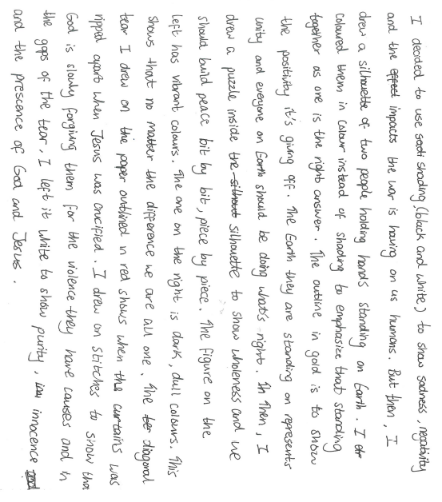 I decided to use shading (black and white) to show sadness, negativity
and the effect impacts the war is having on us humans. But then, I
drew a silhouette of two people holding hands standing on Earth. I
coloured them in colour instead of shading to emphasize that standing
together as one is the right answer. The outline in gold is to show
the positivity it's giving off. The Earth they are standing on represents
unity and everyone on Earth should be doing what's right. Then, I
drew a puzzle inside the silhouette to show wholeness and we
should build peace bit by bit, piece by piece. The figure on the
left has vibrant colours. The one on the right is dark, dull colours. This
shows that no matter the difference we are all one. The diagonal
tear I drew on the paper outlined in red shows when the curtains was
ripped apart when Jesus was crucified. I drew on stitches to show that
God is slowly forgiving them for the violence they have causes and in
the gaps of the tear, I left it white to show purity, innocence and
and the prescence of God and Jesus.